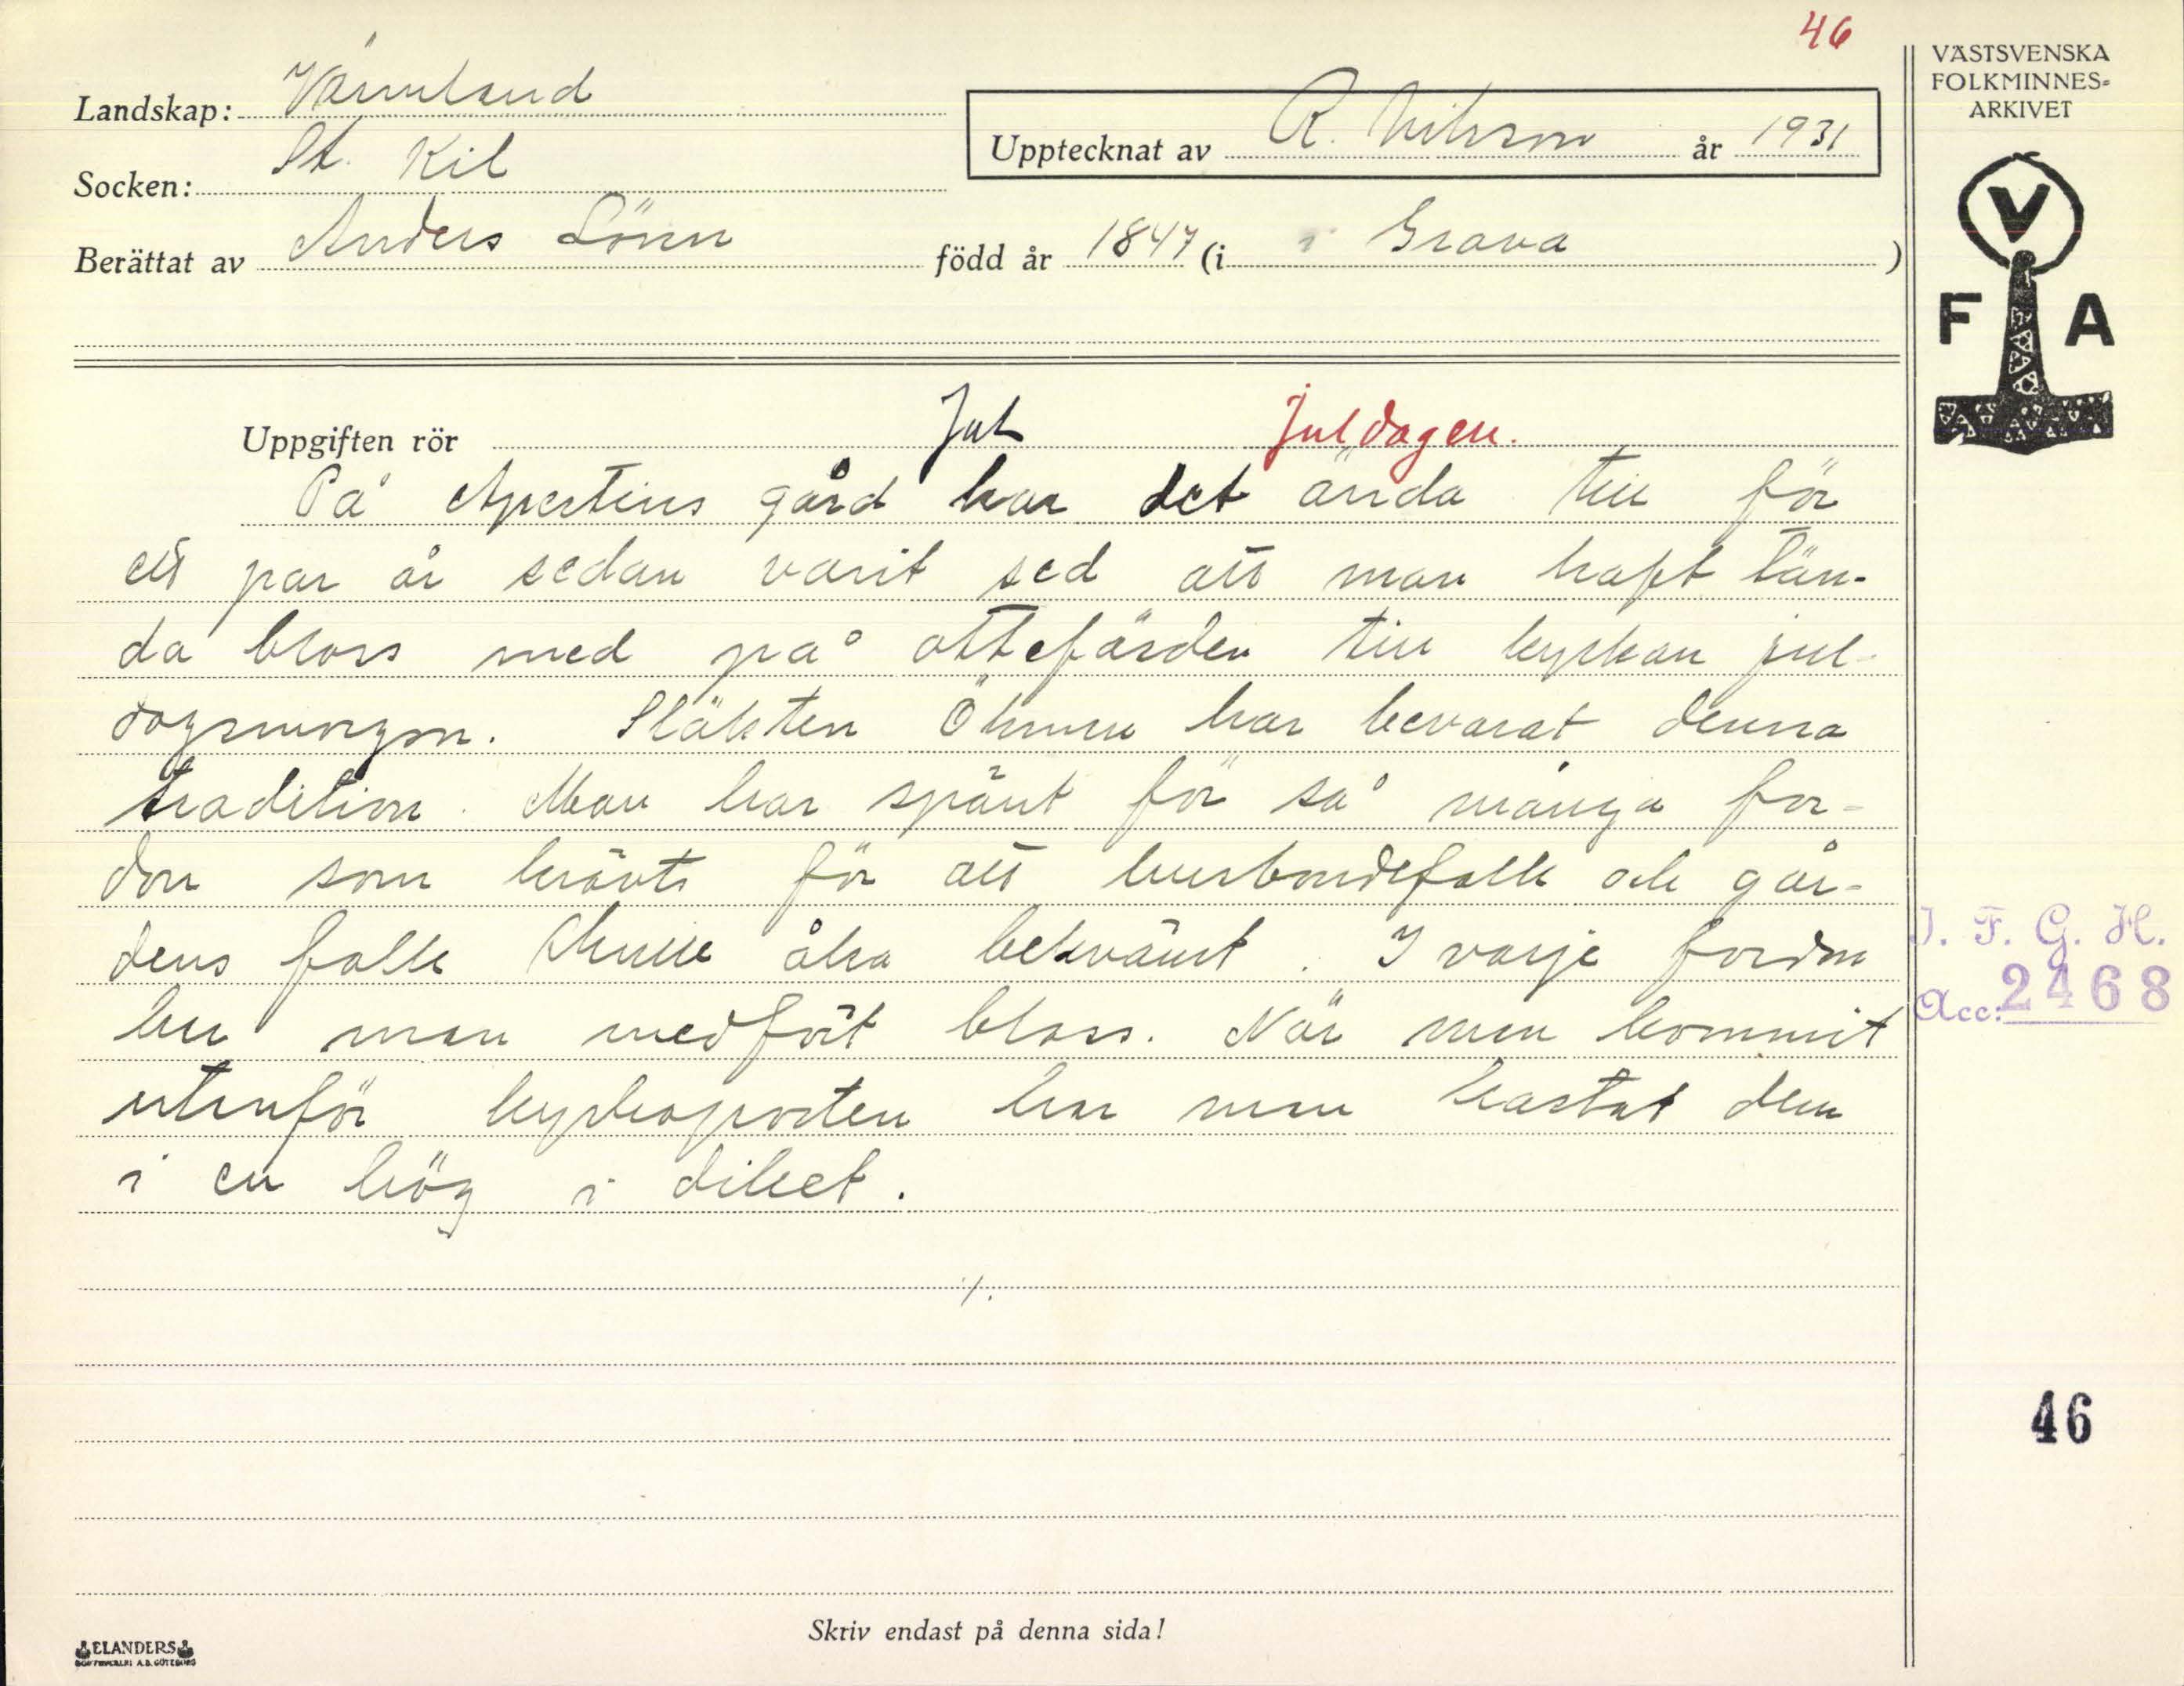 46
VÄSTSVENSKA
FOLKMINNES=
ARKIVET
Landskap: Värmland
Upptecknat av R. Nilsson år 1931
Socken: St. Kil
Berättat av Anders Lönn född år 1847 (i i Grava)
V
F A
Uppgiften rör Jul Juldagen.
På Apertins gård har det ända till för
ett par år sedan varit sed att man haft tän-
da bloss med på ottefärden till kyrkan jul-
dagsmorgon. Släkten Öhman har bevarat denna
tradition. Man har spänt för så många for-
don som krävts för att husbondefolk och går-
dens folk skulle åka bekvämt. I varje fordon
har man medfört bloss. När man kommit
utanför kyrkoporten har man kastat dem
i en hög i diket.
J. F. G. H.
Acc: 2468
./.
46
Skriv endast på denna sida!
ELANDERS
BOKTRYCKERI A.B. GÖTEBORG